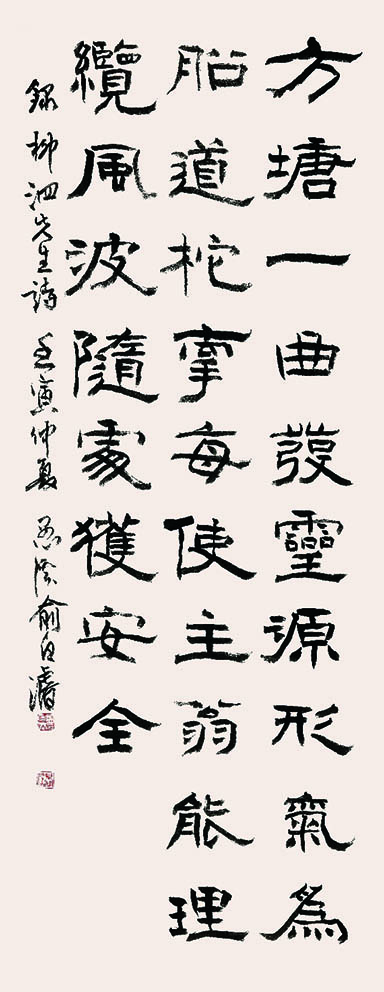 方塘一曲發靈源形氣為
船道柁牽每使主翁能理
纜風波隨處獲安全
錄柳泗先生詩壬寅仲夏俞白濤